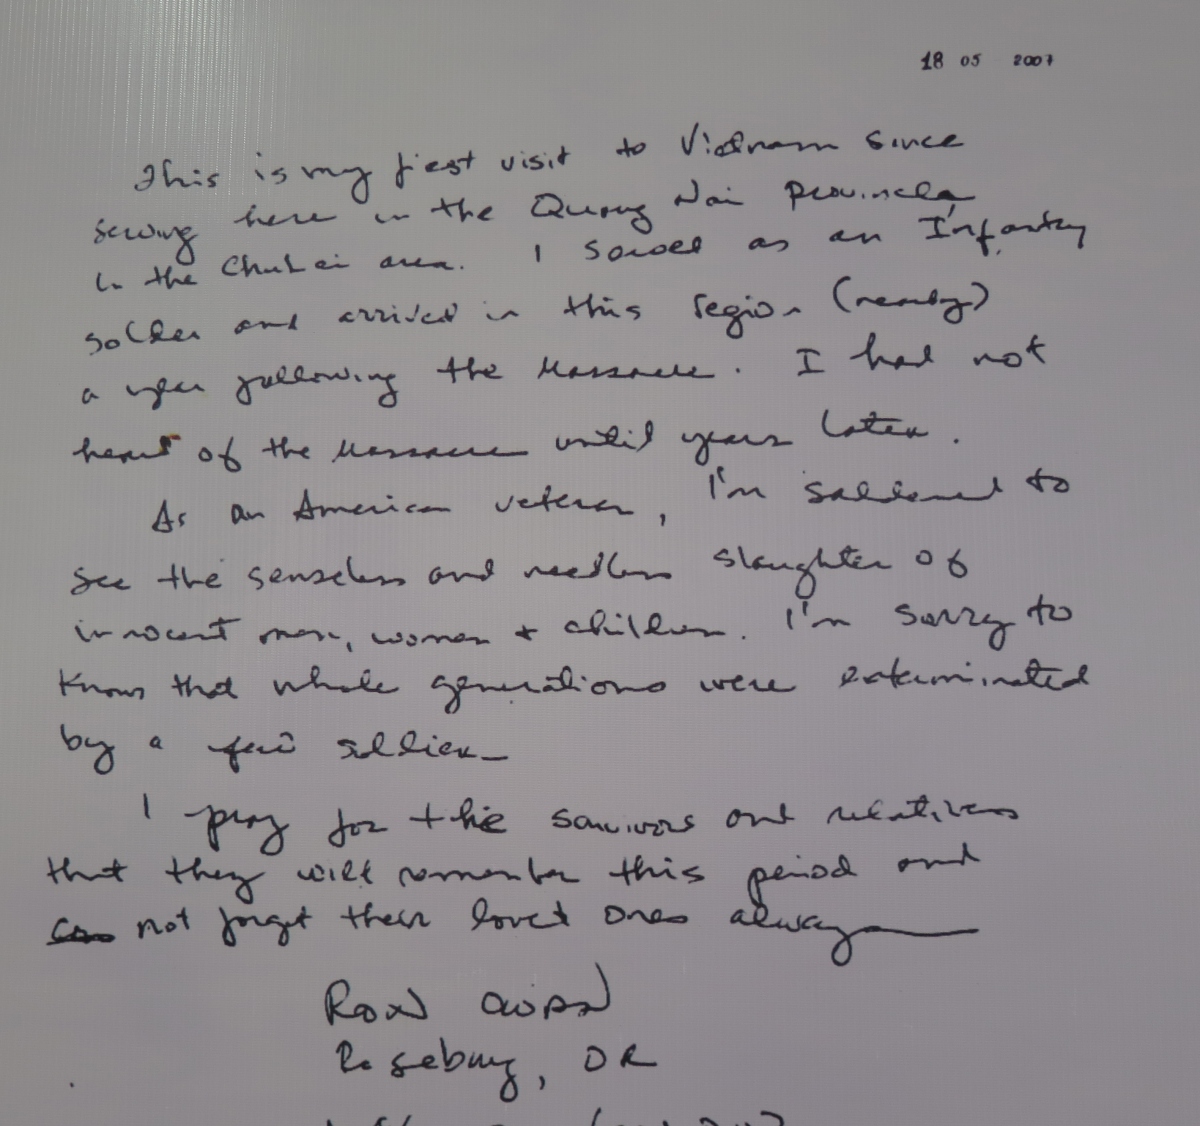 18 05 2007
This is my first visit to Vietnam since
serving here in the Quang Nai Province
in the Chu Lai area. I served as an Infantry
soldier and arrived in this region (nearby)
a year following the Massacre. I had not
heard of the Massacre until years later.
As an American veteran, I'm saddened to
see the senseless and needless slaughter of
innocent men, women + children. I'm sorry to
know that whole generations were exterminated
by a few soldiers
I pray for the survivors and relatives
that they will remember this period and
not forget their loved ones always
Ron
Roseburg, OR